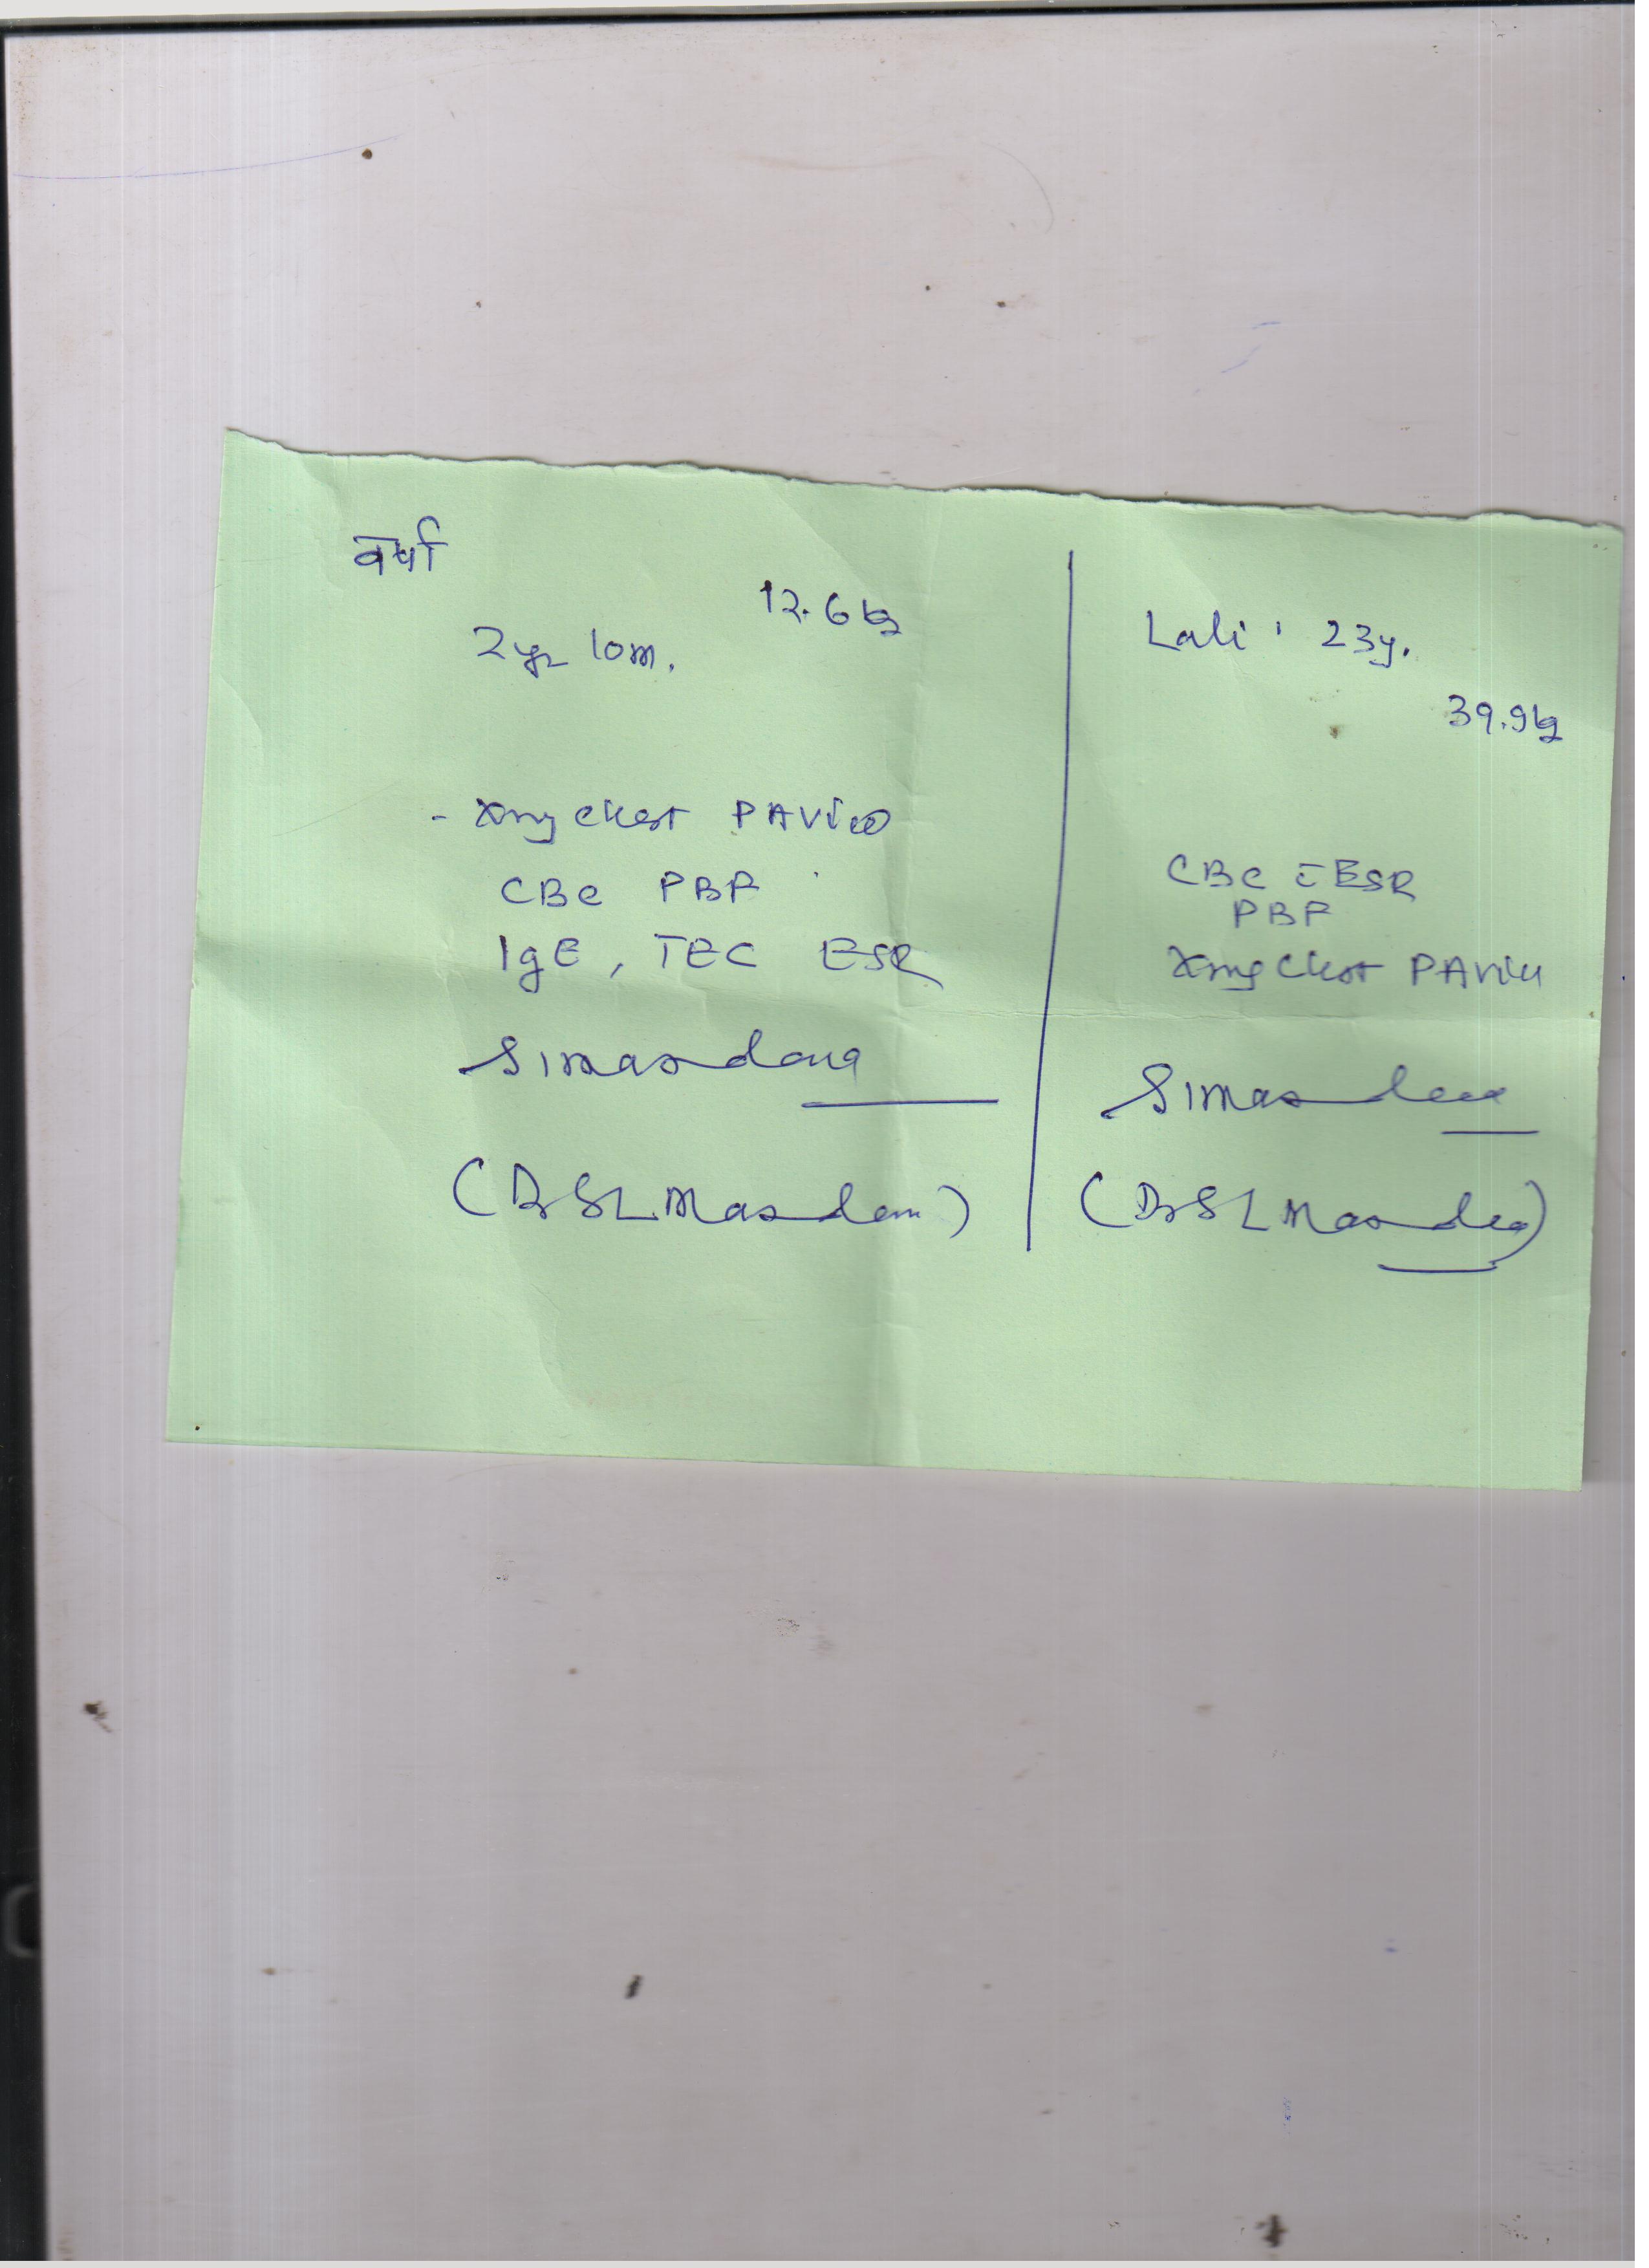 वर्षा
12.6 kg
2yr 10m.
- Xray chest PA view
CBC PBF
IgE, TEC ESR
(Dr S L
Lali 23y.
39.9kg
CBC c̄ ESR
PBF
Xray chest PA view
(Dr S L